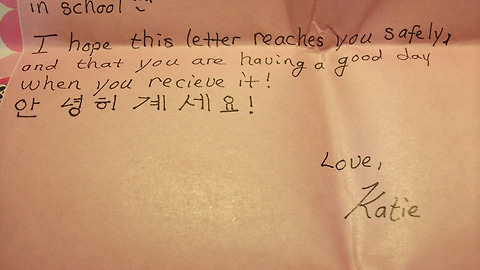 in school
I hope this letter reaches you safely,
and that you are having a good day
when you recieve it!
안녕히 계세요!
Love,
Katie